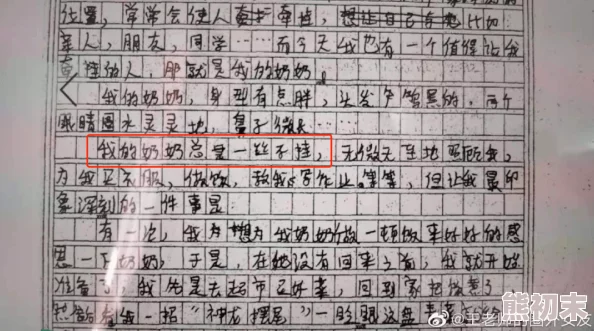 位置，常常会使人牵扯牵挂，想让自己有危比如
亲人，朋友，同学……而今天我也有一个值得让我
牵挂的人，那就是我的奶奶。
我的奶奶，身型有点胖，头发乌黑的，两个
眼睛圆水灵灵地，鼻子微
我的奶奶总是一丝不挂，无微无至地照顾我，
为我买衣服，做饭，教我写作业等等，但让我最印
象深刻的一件事是
有一次，我为想为我奶奶做一顿饭来好好的感
恩一下奶奶，于是，在她没有回来之前，我就开始
准备了，我先是去超市已好菜，回到家把做菜了
然后有我一招“神龙摆尾”一股跟这盘
@王老师的世外文友
熊初末